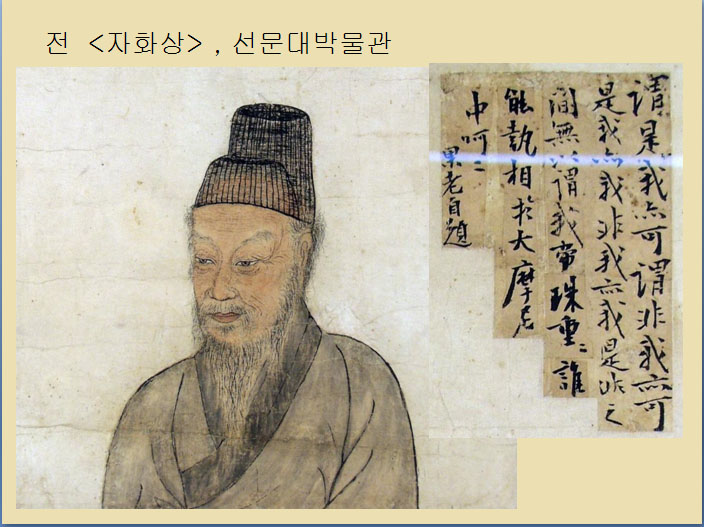 전 <자화상> , 선문대박물관
謂是我亦可謂非我亦可
是我亦我非我亦我是非之
間無以謂我帝珠重〻誰
能執相於大摩尼
中呵〻
果老自題